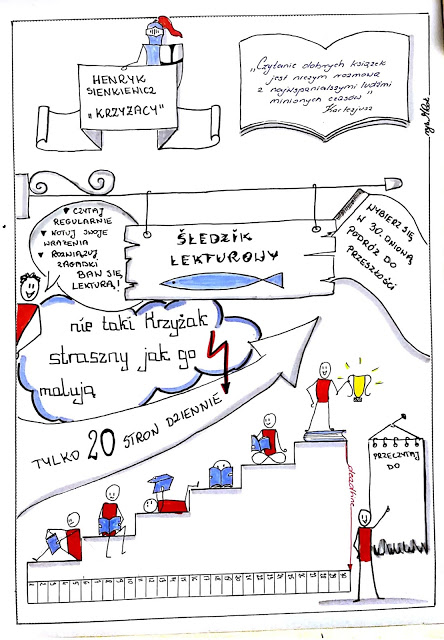 HENRYK
SIENKIEWICZ
„KRZYŻACY”
„Czytanie dobrych książek
jest niczym rozmowa
z najwspanialszymi ludźmi
minionych czasów”
Kartezjusz
CZYTAJ
REGULARNIE
NOTUJ SWOJE
WRAŻENIA
ROZWIĄZUJ
ZAGADKI
BAW SIĘ
LEKTURĄ!
ŚLEDZIK
LEKTUROWY
WYBIERZ SIĘ
W 30. DNIOWĄ
PODRÓŻ DO
PRZESZŁOŚCI
nie taki Krzyżak
straszny jak go
malują
TYLKO 20 STRON DZIENNIE
PRZECZYTAJ
DO
deadline